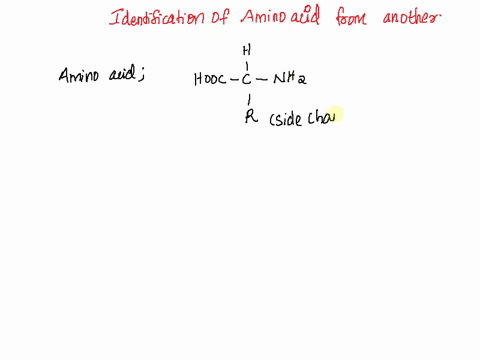 Identification of Amino acid from another.
H
Amino acid; HOOC - C - NH2
R (side cha